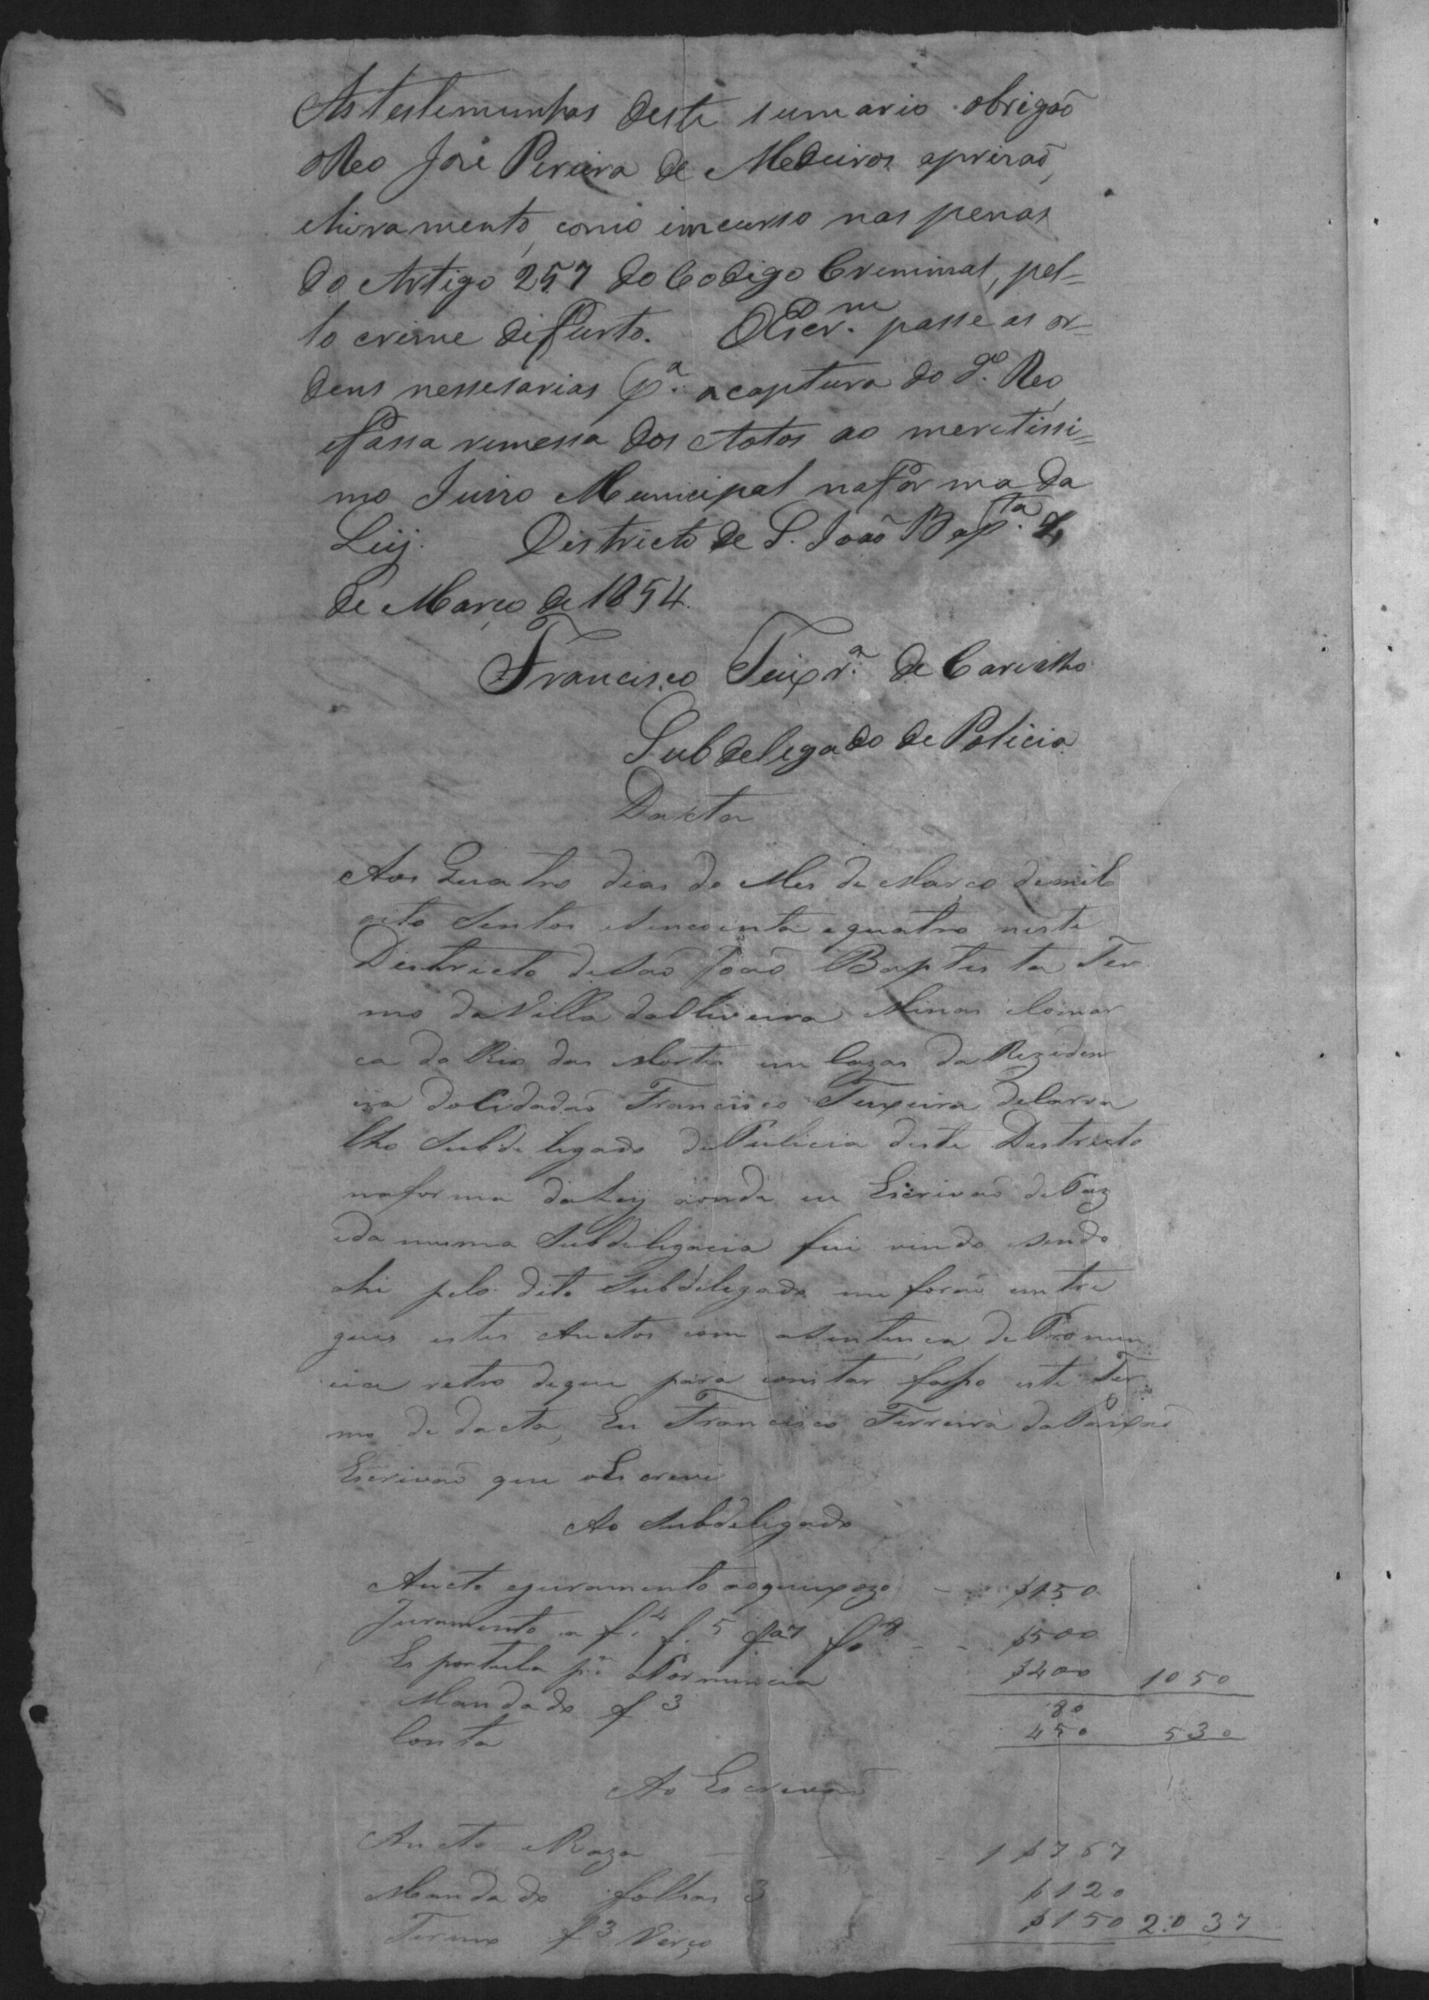 As testemunhas deste sumario obrigaõ
o Reo José Pereira de Medeiros aprizaõ,
e livramento, como incurso nas penas
do Artigo 257 do Codigo Creminal, pel=
lo crime de furto. O Escr.m passe as or=
dens nessesarias p.a a captura do d.o Reo,
e fassa remessa dos Autos ao meretissi=
mo Juizo Municipal na forma da
Leij. Districto de S. João Bap.ta 4
de Março de 1854.
Francisco Teixr.a de Carvalho
Subdelegado de Policia
Dacta
Aos Quatro dias do Mes de Março de mil
oito Sentos e Sincoenta e quatro neste
Destricto de Saõ Joaõ Baptista Ter
mo da Villa da Oliveira Minas e Comar
ca do Rio das Mortes em Cazas da Reziden
cia do Cidadaõ Francisco Teixeira de Carva
lho Subdelegado de Pulicia deste Destricto
na forma da Ley aonde eu Escrivaõ de Paz
e da mesma Subdelegacia fui vindo e sendo
ahi pelo dito Subdelegado me foraõ entre
gues estes Auctos com a Sentença de Pronun
cia retro de que para constar faço este Ter
mo de dacta, Eu Francisco Ferreira da Paixaõ
Escrivaõ que o Escrevi
Ao Subdelegado
Aucto e juramento ao queixozo $150
Juramento a f. 4 f. 5 f.a 7 f.a 8 $500
Esportula p.a a Pornuncia $400 1050
Mandado f 3 80
Conta 450 530
Ao Escrivaõ
Aucto Raza 1$767
Mandado folhas 3 $120
Termo f 3 Verço $150 2.037